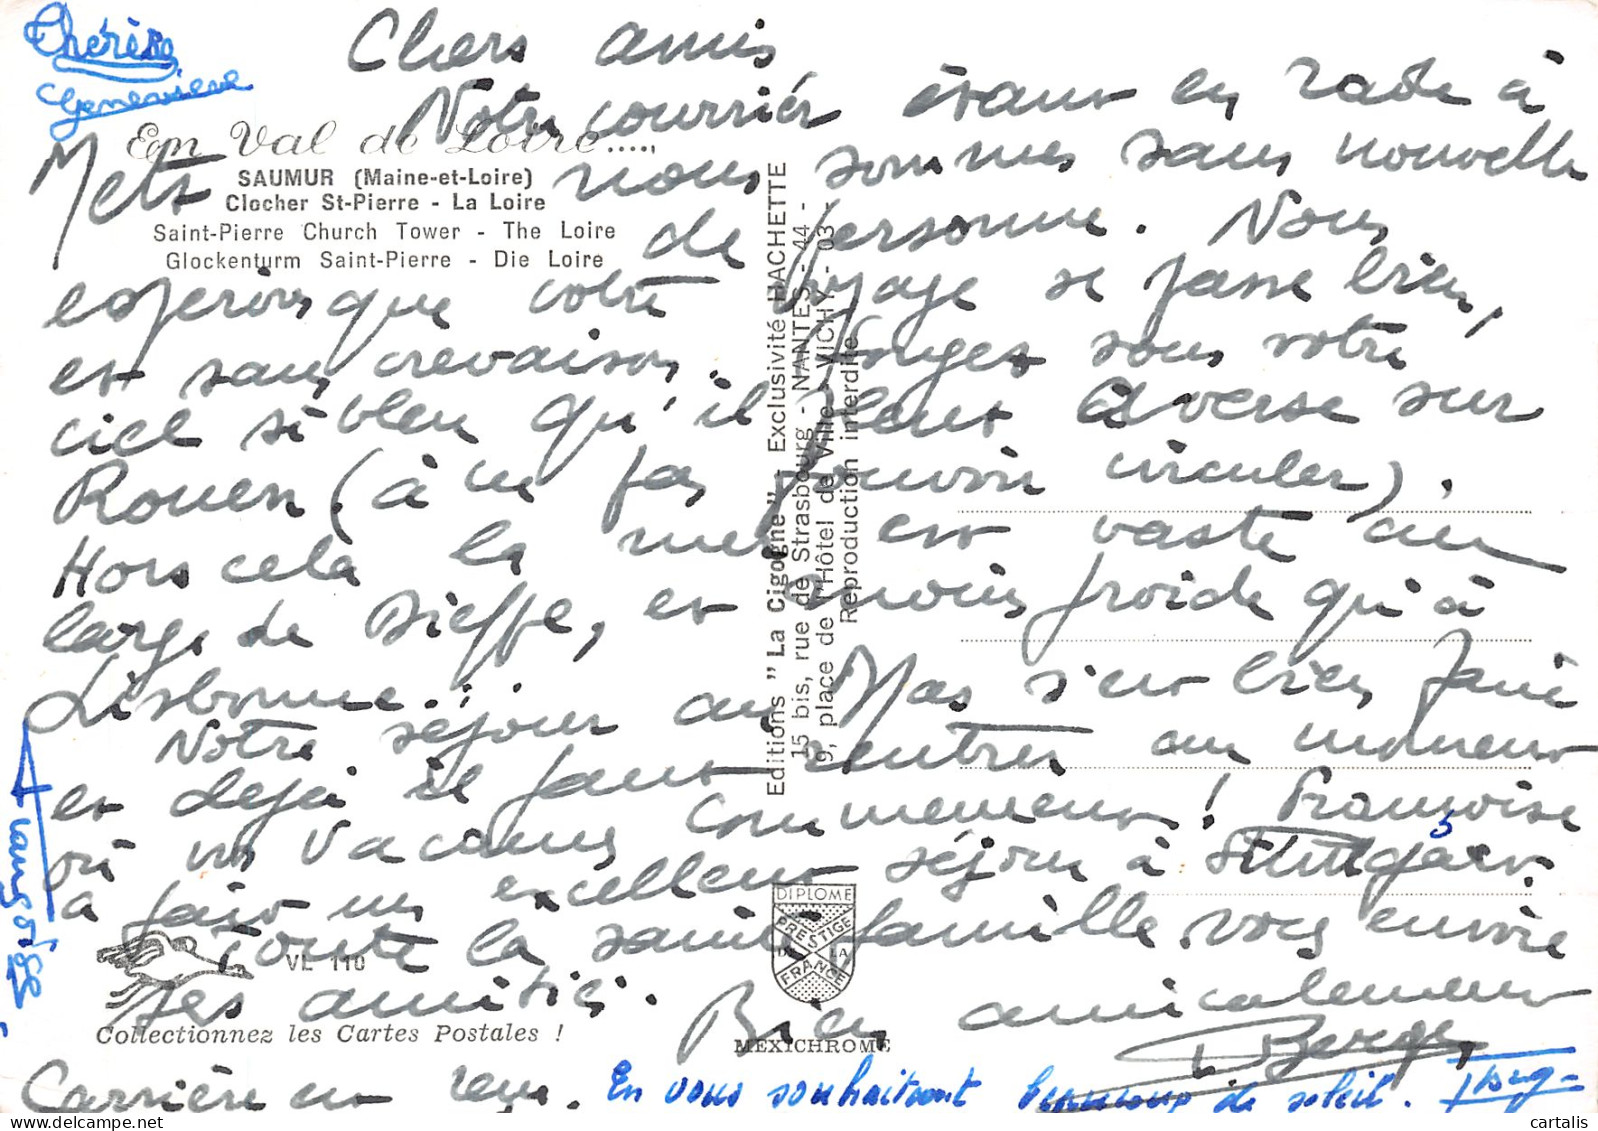 Thérèse
Geneviève
Chers amis
Notre courrier étant en rade à
Metz nous sommes sans nouvelle
de personne. Nous
espérons que votre voyage se passe bien,
et sans crevaison. Songez sous votre
ciel si bleu qu'il pleut à verse sur
Rouen (à ne pas pouvoir circuler).
Hors cela la mer est vaste au
large de Dieppe, et moins froide qu'à
Lisbonne.
Notre séjour au Mas s'est bien passé
et déjà il faut rentrer au moment
où vos vacances commencent! Françoise
a fait un excellent séjour à Stuttgart.
Toute la sainte famille vous envoie
ses amitiés. Bien amicalement
Carrière en
En vous souhaitant beaucoup de soleil.
Françoise
En Val de Loire....,
SAUMUR (Maine-et-Loire)
Clocher St-Pierre - La Loire
Saint-Pierre Church Tower - The Loire
Glockenturm Saint-Pierre - Die Loire
Editions "La Cigogne" - Exclusivité HACHETTE
15 bis, rue de Strasbourg - NANTES - 44 -
9, place de l'Hôtel de Ville - VICHY - 03 -
Reproduction interdite
DIPLOME
PRESTIGE
DE LA
FRANCE
MEXICHROME
VL 110
Collectionnez les Cartes Postales !
cartalis